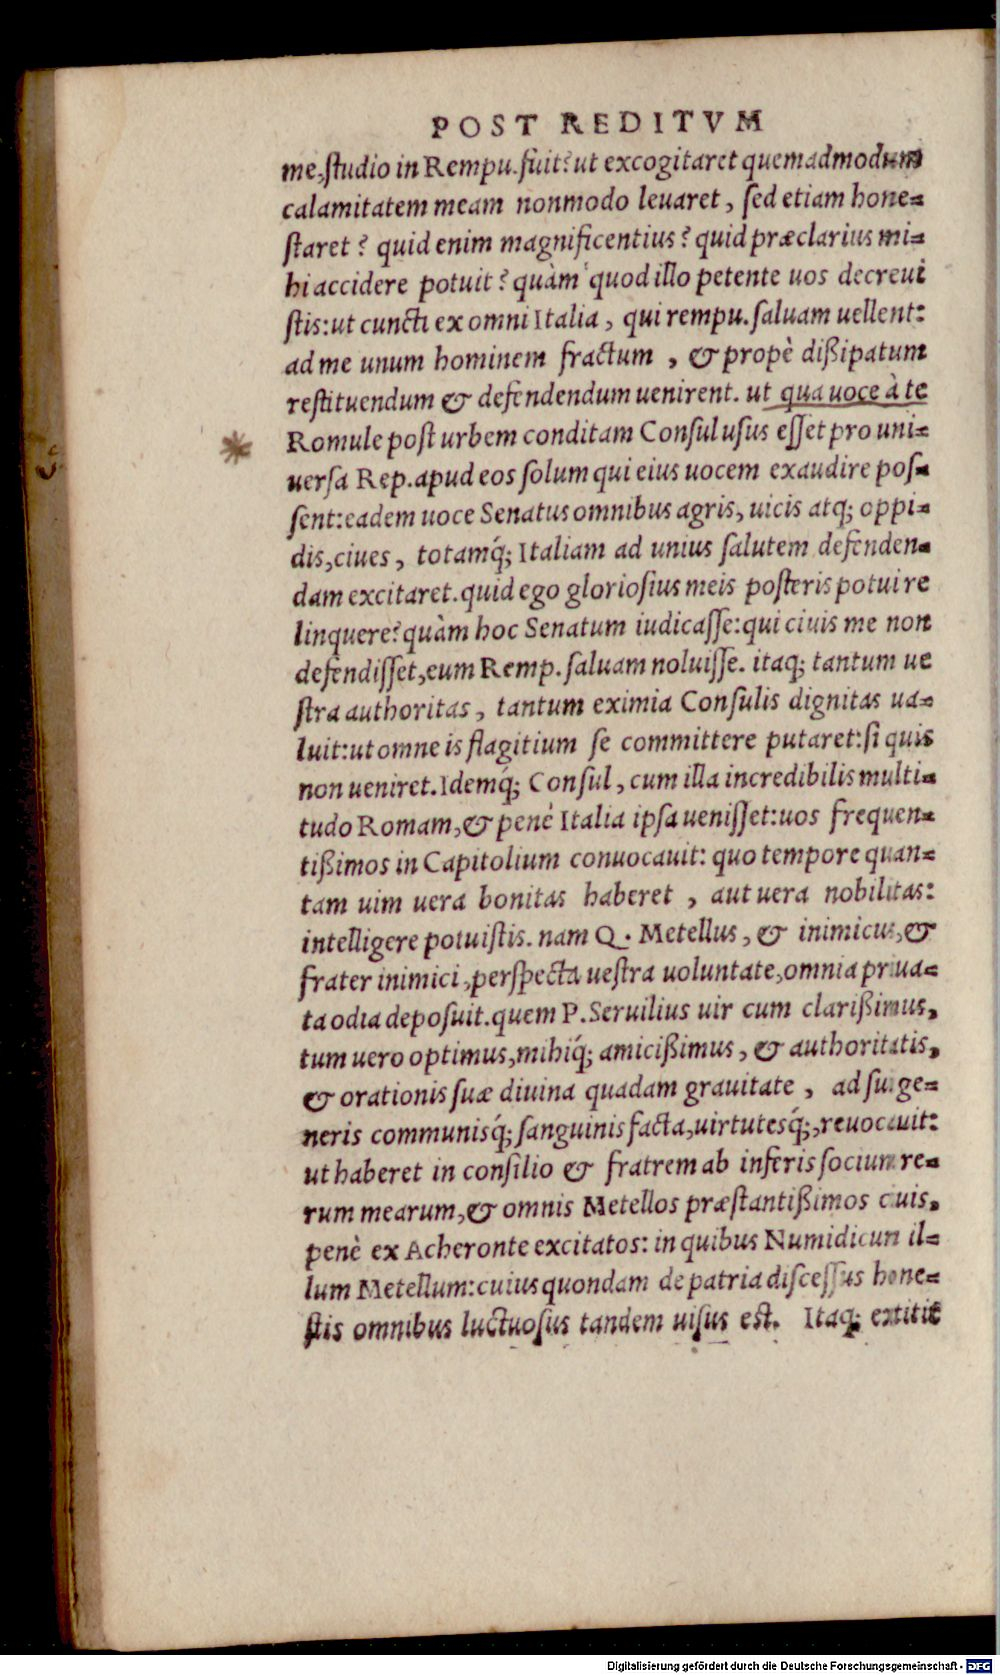 POST REDITVM
me,ſtudio in Rempu.fuit? ut excogitaret quemadmodum
calamitatem meam nonmodo leuaret, ſed etiam hone=
ſtaret? quid enim magnificentius? quid præclarius mi=
hi accidere potuit? quàm quod illo petente uos decreui
ſtis: ut cuncti ex omni Italia, qui rempu. ſaluam uellent:
ad me unum hominem fractum, & propè dißipatum
reſtituendum & defendendum uenirent. ut qua uoce à te
Romule poſt urbem conditam Conſul uſus eſſet pro uni=
uerſa Rep. apud eos ſolum qui eius uocem exaudire poſ=
ſent: eadem uoce Senatus omnibus agris, uicis atq; oppi=
dis, ciues, totamq́; Italiam ad unius ſalutem defenden=
dam excitaret. quid ego glorioſius meis poſteris potui re
linquere? quàm hoc Senatum iudicaſſe: qui ciuis me non
defendiſſet, eum Remp. ſaluam noluiſſe. itaq; tantum ue
ſtra authoritas, tantum eximia Conſulis dignitas ua=
luit: ut omne is flagitium ſe committere putaret: ſi quis
non ueniret. Idemq́; Conſul, cum illa incredibilis multi=
tudo Romam, & penè Italia ipſa ueniſſet: uos frequen=
tißimos in Capitolium conuocauit: quo tempore quan=
tam uim uera bonitas haberet, aut uera nobilitas:
intelligere potuiſtis. nam Q. Metellus, & inimicus, &
frater inimici, perſpecta ueſtra uoluntate, omnia priua=
ta odia depoſuit. quem P. Seruilius uir cum clarißimus,
tum uero optimus, mihiq́; amicißimus, & authoritatis,
& orationis ſuæ diuina quadam grauitate, ad ſui ge=
neris communisq́; ſanguinis facta, uirtutesq́;, reuocauit:
ut haberet in conſilio & fratrem ab inferis ſocium re=
rum mearum, & omnis Metellos præſtantißimos ciuis,
penè ex Acheronte excitatos: in quibus Numidicum il=
lum Metellum: cuius quondam de patria diſceſſus hone=
ſtis omnibus luctuoſus tandem uiſus eſt. Itaq; extitit
Digitalisierung gefördert durch die Deutsche Forschungsgemeinschaft - DFG